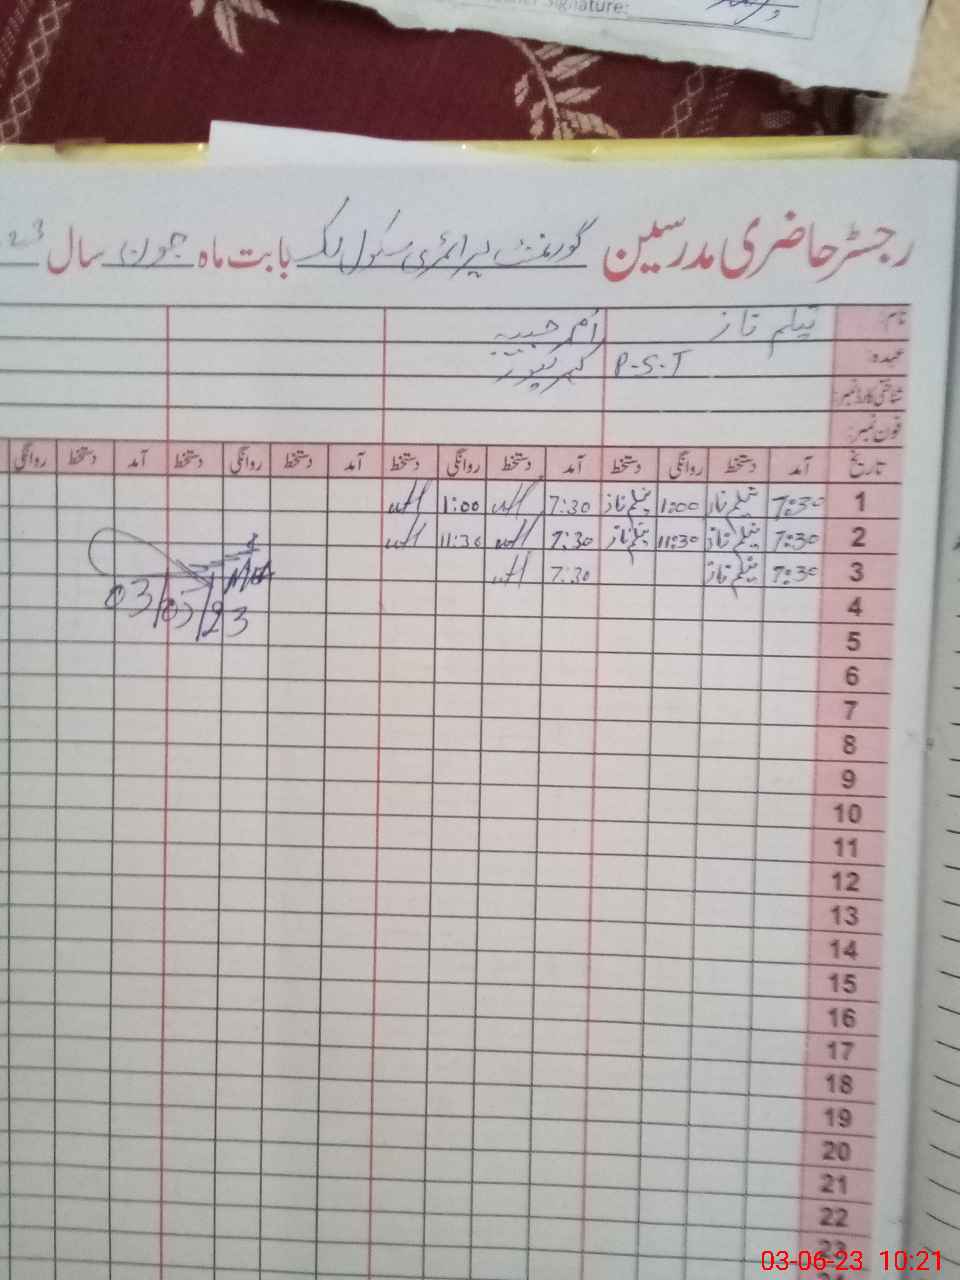 Signature:
رجسٹر حاضری مدرسین گورنمنٹ پرائمری سکول بابت ماہ جون سال 23
نام: نیلم ناز اُم حبیبہ
عہدہ: P.S.T
شناختی کارڈ نمبر:
فون نمبر:
تاریخ آمد دستخط روانگی دستخط آمد دستخط روانگی دستخط آمد دستخط روانگی دستخط آمد دستخط روانگی
1 7:30 نیلم ناز 1:00 نیلم ناز 7:30 1:00
2 7:30 نیلم ناز 11:30 نیلم ناز 7:30 11:30
3 7:30 نیلم ناز 7:30
4
03/05/23
5
6
7
8
9
10
11
12
13
14
15
16
17
18
19
20
21
22
23
03-06-23 10:21